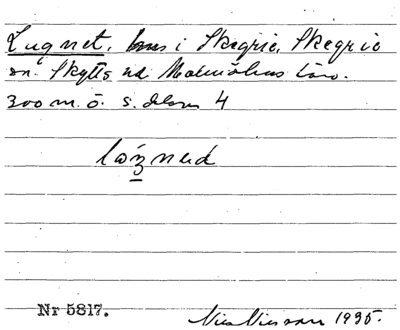 Lugnet, hus i Skegrie, Skegrie
sn. Skytts hd Malmöhus län.
300 m. ö. s. dom 4
Nr 5817.
Nils Nilsson 1935.